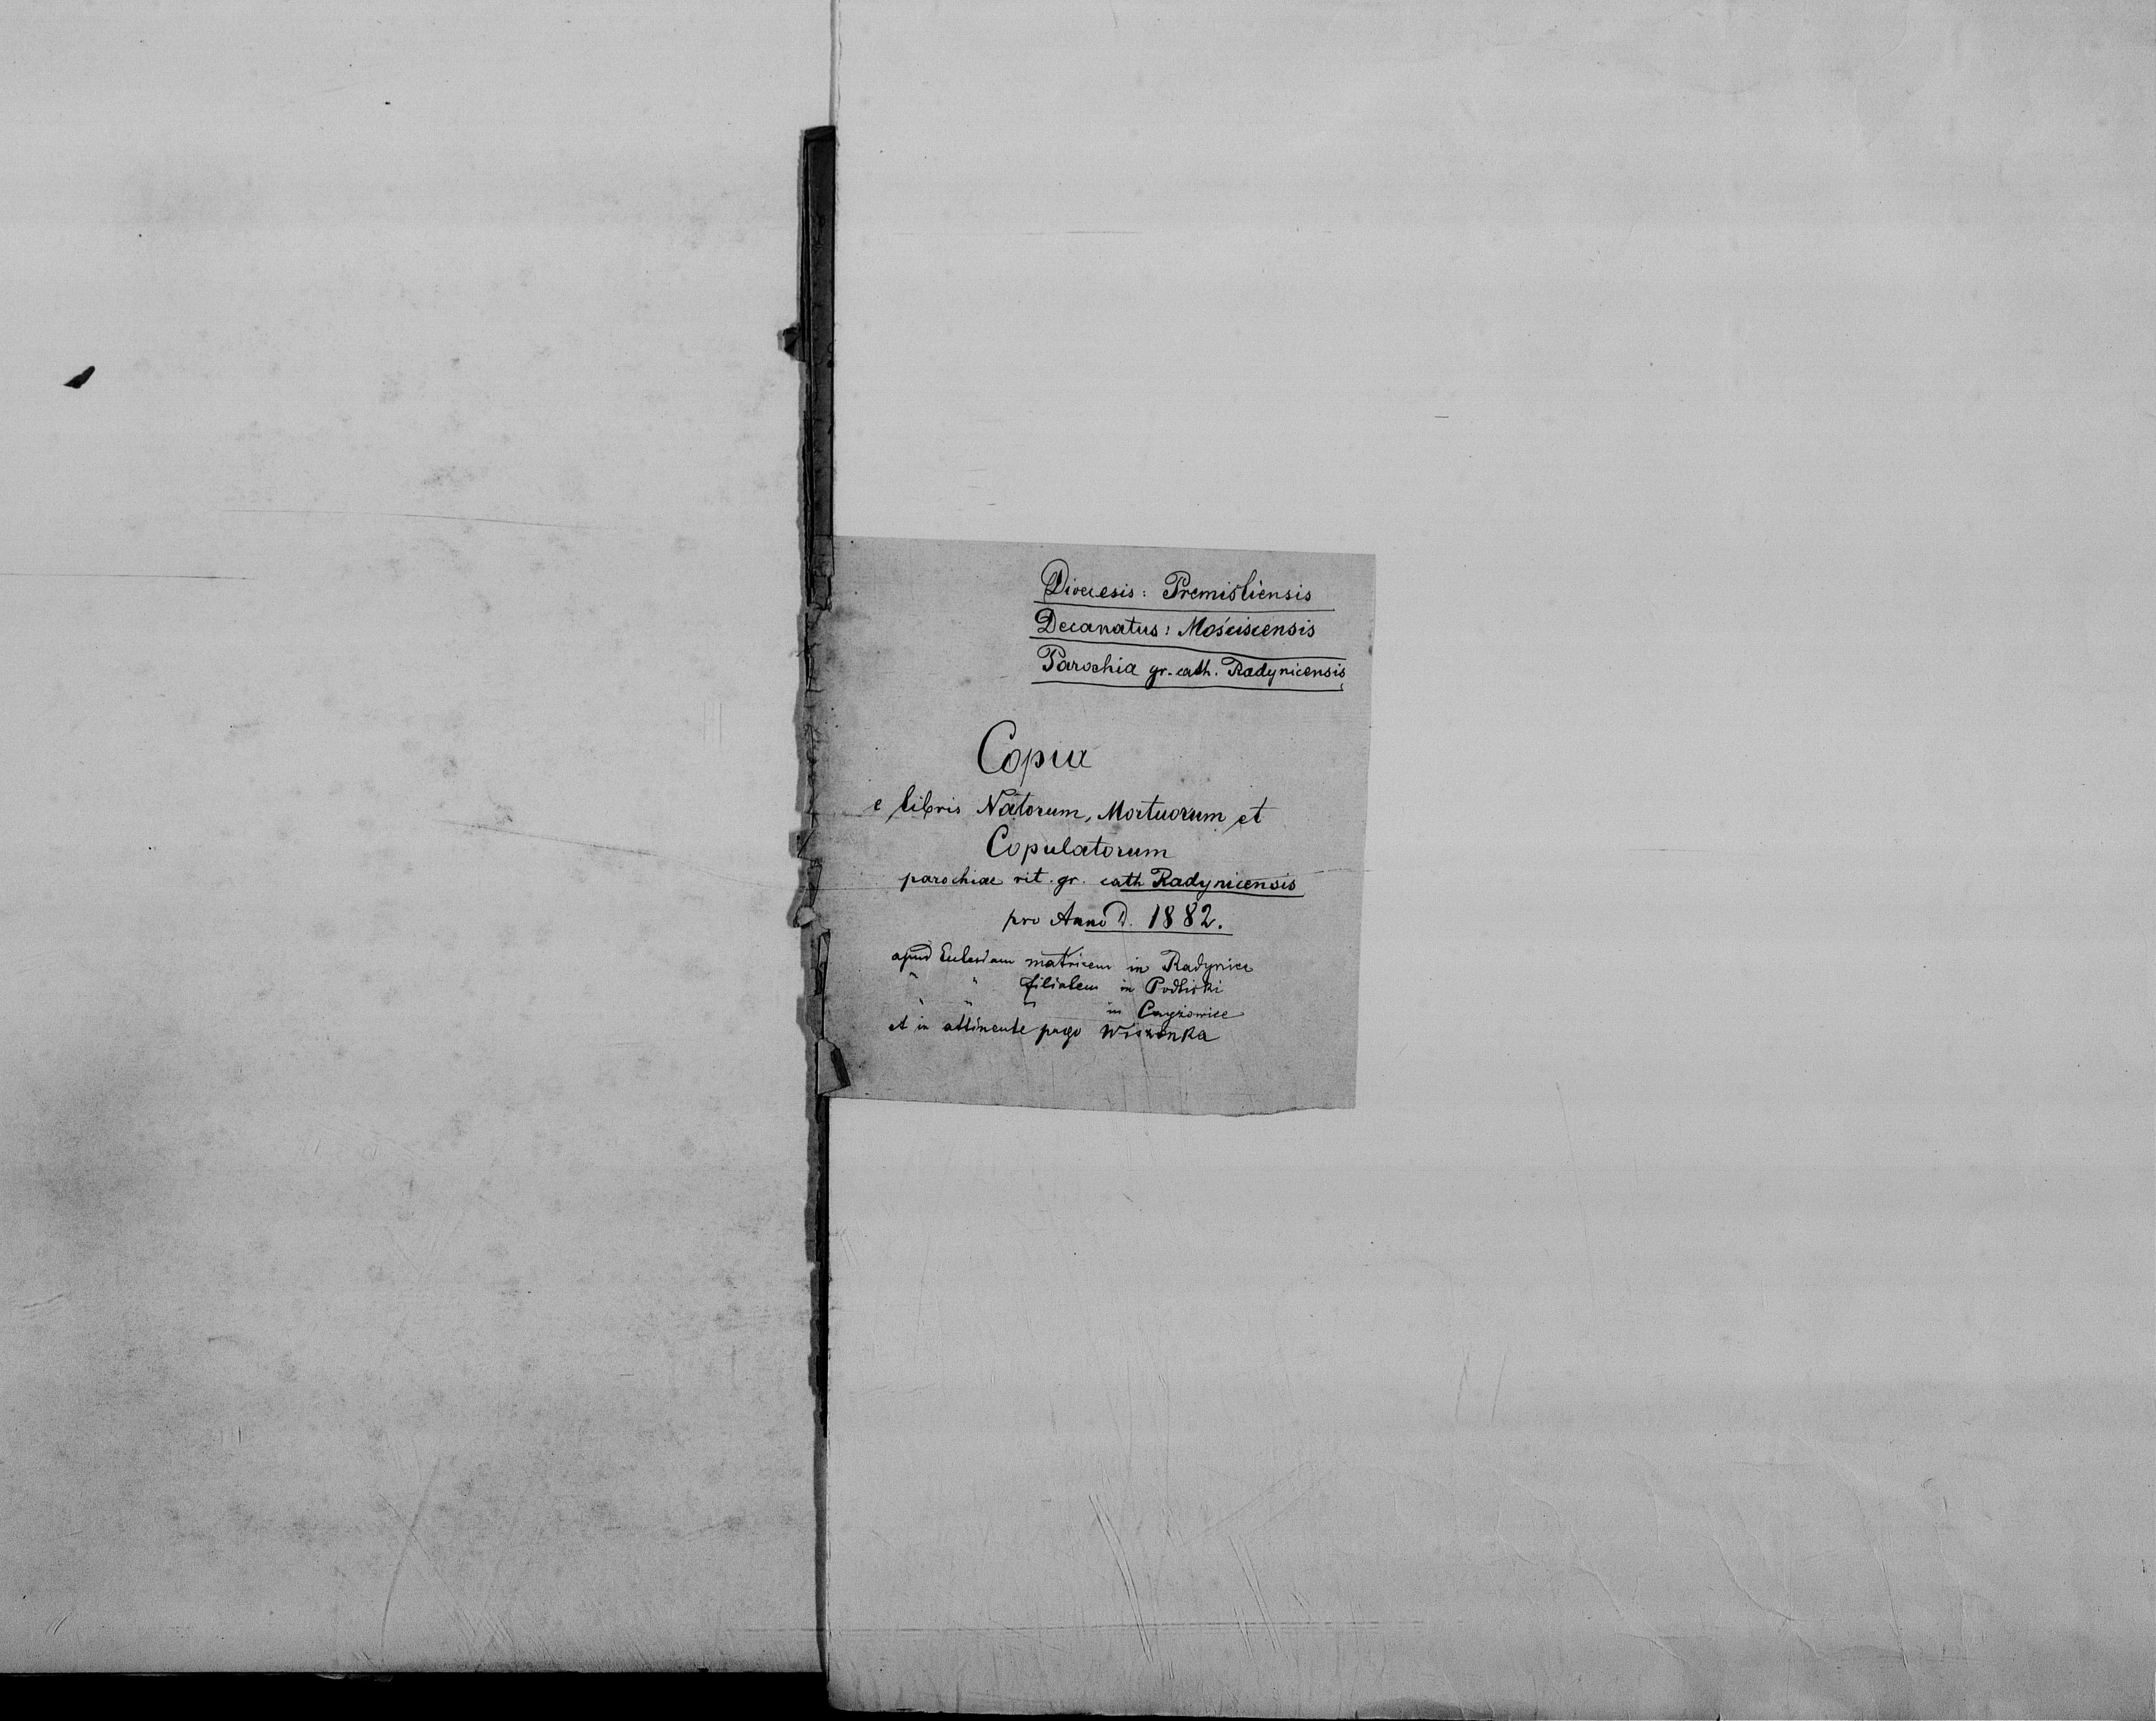 Dioecesis: Premisliensis
Decanatus: Mościscensis
Parochia gr. cath. Radynicensis
Copia
e libris Natorum, Mortuorum et
Copulatorum
parochiae rit. gr. cath Radynicensis
pro Anno D. 1882.
apud Ecclesiam matricem in Radynice
" " filialem in Podliski
" " " in Czyżowice
et in attinente pago Wiszenka